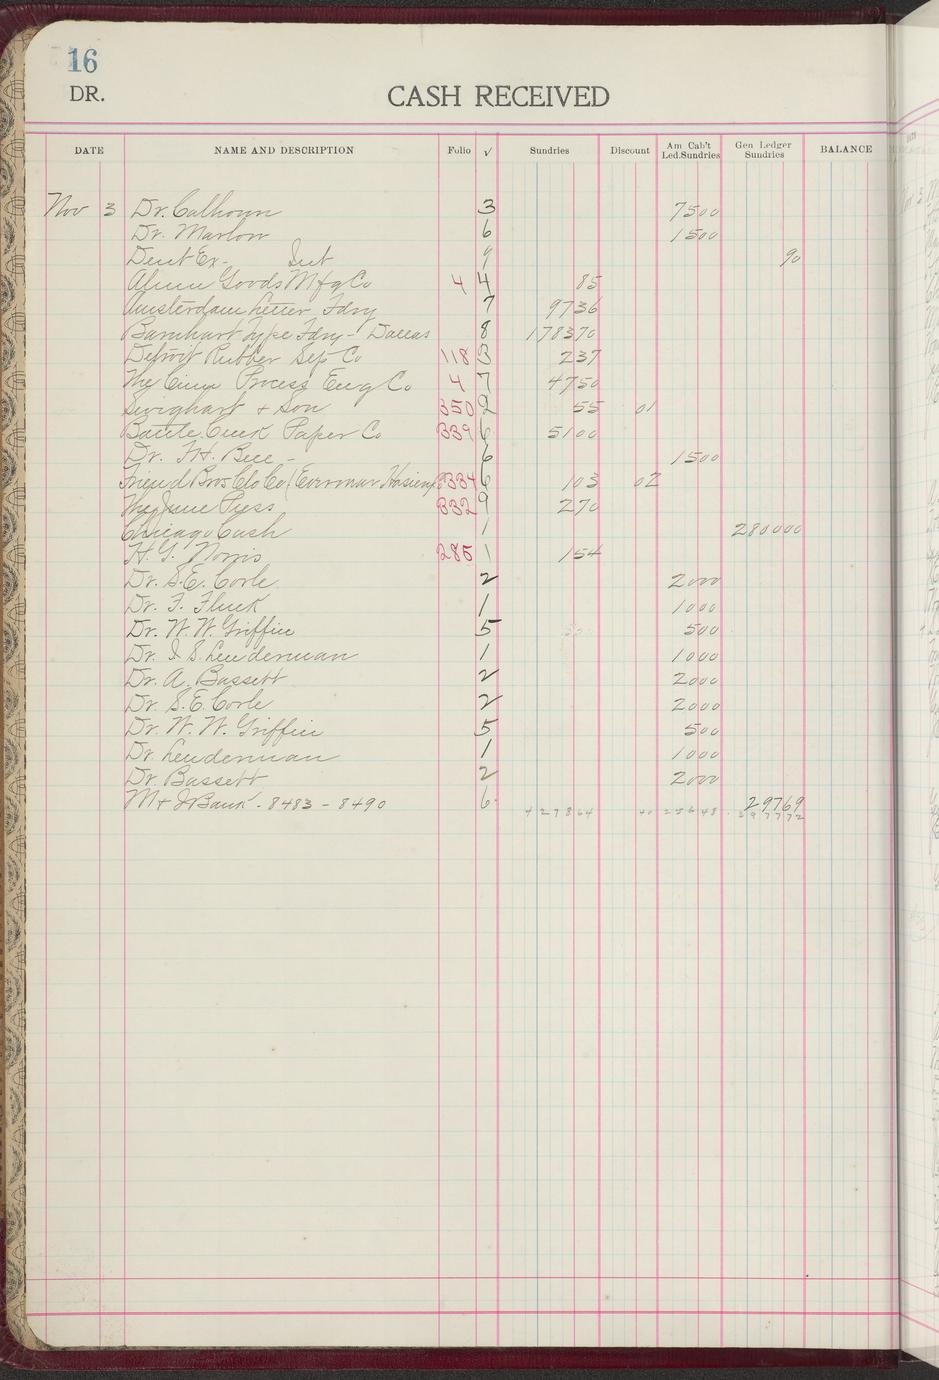 16
DR.
CASH RECEIVED
DATE NAME AND DESCRIPTION Folio √ Sundries Discount Am Cab't Led.Sundries Gen Ledger Sundries BALANCE
Nov 3 Dr. Calhoun 3 7500
Dr. Marlow 6 1500
Dent Ex- Int 9 90
Alum Goods Mfg Co 4 4 85
Amsterdam Letter Fdry 7 9736
Barnhart Type Fdry - Dallas 8 178370
Detroit Rubber Sep Co 118 3 237
The Process Eng Co 4 7 4750
Swighart + Son 350 2 55 01
Battle Creek Paper Co 339 6 5100
Dr. F.H. - 6 1500
Friend Bros Clo Co ( 334 6 103 02
The June Press 332 9 270
Chicago Cash 1 280000
H. G. Norris 285 1 154
Dr. S.E. Corle 2 2000
Dr. F. Fluck 1 1000
Dr. W. W. Griffin 5 500
Dr. I S. Lenderman 1 1000
Dr. A. Bassett 2 2000
Dr. S.E. Corle 2 2000
Dr. W. W. Griffin 5 500
Dr. Lenderman 1 1000
Dr. Bassett 2 2000
M + J Bank - 8483 - 8490 6 29769